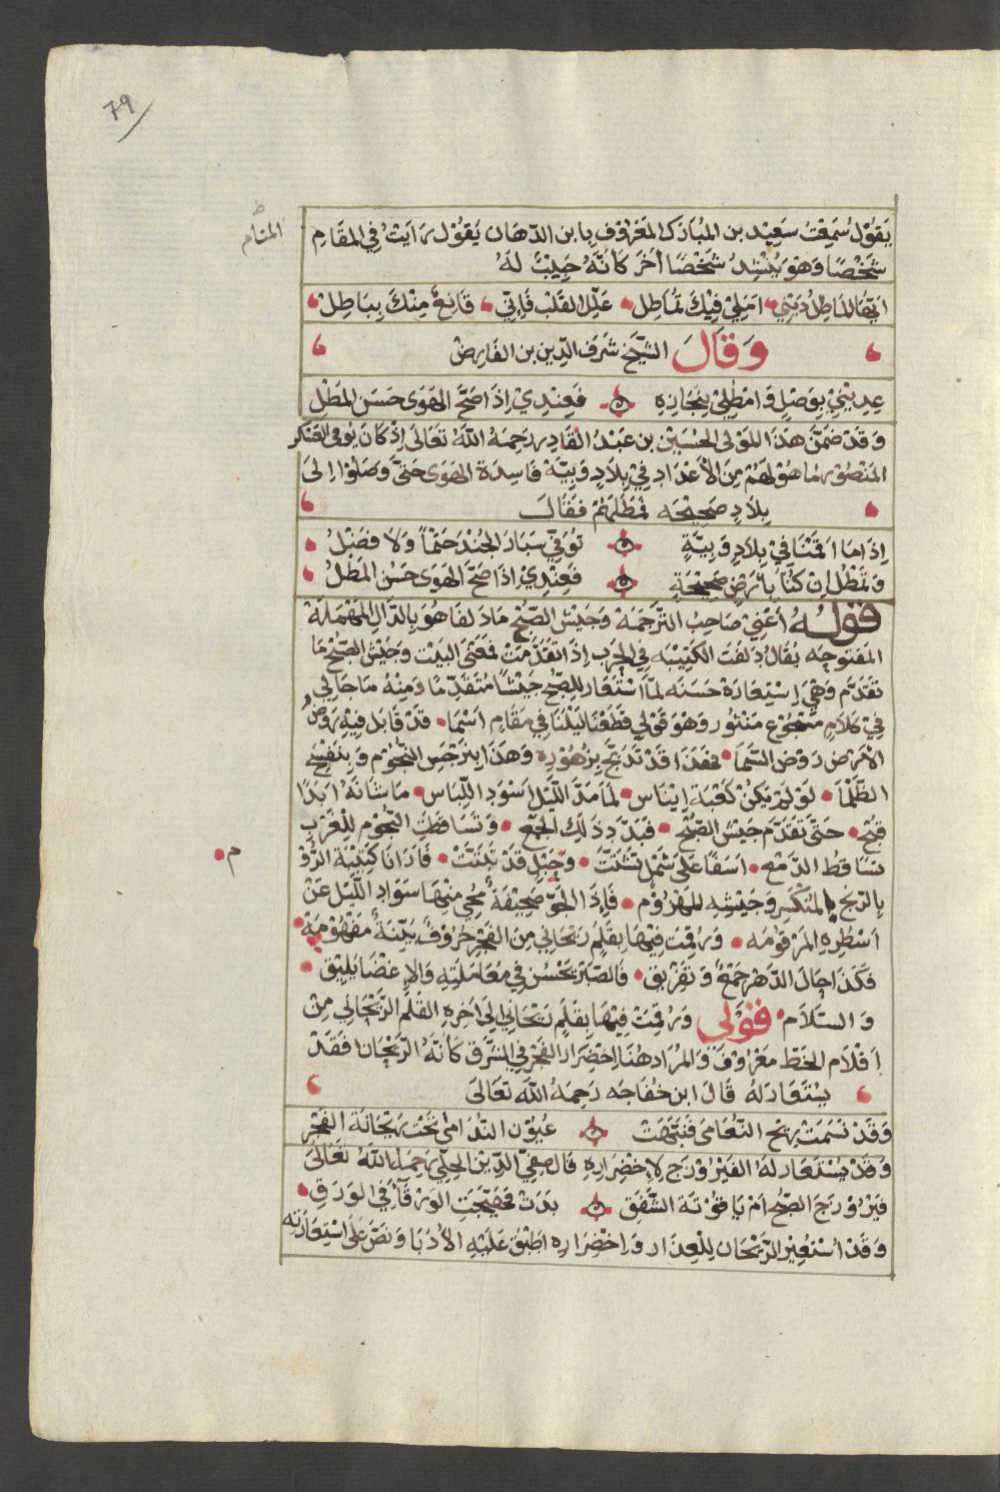 79
يَقُولُ سَمِعْتُ سَعِيْد بن المُبَارَك المَعْرُوْف بابن الدّهَان يَقُوْل رَايَتُ فِي المَقَامِ
المنام
شَخْصًا وَهُوَ يُنْشِدُ شَخْصًا آخَر كَانَّهُ حَبِيْبٌ لَهُ
ايّهَا المَاطِلُ دَيْنِي امَلِيْ فِيْكَ تُمَاطِل عَلِّل القَلْب فَاِنِّي قَانِعٌ مِنْكَ بِبَاطِلْ
وَقَالَ الشّيْخ شَرَف الدّين بن الفَارِض
عِدِيْنِيْ بِوَصْلٍ وَامْطُلِيْ بِنَجَازِهِ فَعِنْدِيْ اِذَا صَحَّ الهَوَى حَسُنَ المَطْل
وَقَدْ ضَمَّنَ هَذَا المَوْلى الحُسَيْن بن عَبْد القَادِر رَحِمَهُ اللّه تَعَالَى اِذْ كَانَ يُوفى العَسْكر
المَنْصُوْر مَا هُوَ لَهُمْ مِنَ الأعْدَادِ فِيْ بِلَادٍ وَبِيَّة فَاسِدَة الهَوَى حَتَّى وَصَلُوْا اِلىَ
بِلَادٍ صَحِيْحَه فَمَطَلَهُمْ فَقَالَ
اِذَا مَا اقَمْنَا فِيْ بِلَادٍ وَبِيَّةٍ تُوَفّي سَبَارَ الجُنْدِ حَتْماً وَلَا فَضْلُ
وَتَمْطُل اِنْ كُنَّا بِاَرْضٍ صَحِيْحَةٍ فَعِنْدِيْ اذَا صَحَّ الهَوَى حَسُنَ المَطْلُ
قَوْلهُ أَعْنِيْ صَاحِبُ التّرْجَمَة وَجَيْش الصّبْح مَا دَلفَا هُوَ بِالدَّالِ المُهْمَلَة
المَفْتُوحَه يُقَالُ دَلفَت الكَتِيْبَه فِي الحَرْب اِذَا تَقَدَّمَتْ فَمَعْنَى البَيْت وَجَيْش الصّبْح مَا
تَقَدَّم وَهِيَ اِسْتِعَارَة حَسَنَه لمّا اسْتَعَارَ لِلصّبْح جَيْشاً مُتَقَدِّمًا وَمِنْهُ مَا جَا لِي
فِيْ كَلَامٍ مَسْجُوْع مَنْثُور وَهُوَ قَوْلي قَطَعْنَا لَيْلَنَا فِي مَقَامٍ اَسْمَا قَدْ قَابَل فِيْهِ رَوْضُ
الأرْض رَوْضَ السَّمَا فهَذَا قَدْ تَدَبَّج بِزُهُوْرِه وَهَذَا بِنَرْجَسِ النُّجُوْم وَبَنَفْسَج
الظَّلْمَا لَوْ لَمْ يَكُنْ كَعْبَة اِيْنَاس لَمَا مَدَّ اللَّيْل اَسْوَدَ اللِّبَاس مَا شَانَهُ ابَدًا
قبْح حَتَّى تَقَدَّم جَيْش الصّبْح فَبَدّد ذَلِك الجَمْع وَتَسَاقَطَت النّجُوْم لِلْغَرْبِ
تَسَاقُط الدّمْع اَسَفًا عَلَى شَمْلٍ تَشَتَّتَ وَحَبْلٍ قَدْ تَبَتَّتْ فَارَانَا كَتِيْبَة الرُّوْم
م
بِالزّنْج المُنْكَسِر وَجَيْشِه المَهْزُوْم فَإِذَا الجَوّ صَحِيْفَةٌ مُحِيَ مِنْهَا سَوَادِ اللَّيْل عَنْ
اَسْطُرِهِ المَرْقُومَه وَرُقِمَتْ فِيْهَا بِقَلَمٍ رَيْحَانِي مِنَ الفَجْر حُرُوْفٌ بَيِّنَةٌ مَفْهُوْمَةٌ
فَكَذَا حَالَ الدَّهْر جَمْعٌ وَتَفْرِيْق فَالصَّبْر يَحْسُن فِي مُعَامَلَتِهِ وَالاِغْضَا يَلِيْق
وَالسَّلَام قَوْلي وَرُقِمَتْ فِيْهَا بِقَلَم رَيْحَانِي اِلَى اَخِرِه القَلَم الرَّيْحَانِي مِنْ
اَقْلَام الخَطّ مَعْرُوْف وَالمُرَاد هُنَا اِخْضِرَار الفَجْر فِي الشّرْق كَانَّهُ الرّيْحَان فَقَدْ
يُسْتَعَار لَهُ قَالَ ابن خفَاجَه رَحِمَهُ اللّه تَعَالَى
وَقَدْ نَسَمَتْ رِيْح النُّعَامَى فَنَبَّهَتْ عُيُوْن النَّدَامى تَحْت رَيْحَانَة الفَجْر
وَقَدْ يُسْتَعَار لَهُ الفَيْرُوْزَج لِاِخْضِرَارِهِ قَالَ صَفِيّ الدِّيْن الحِلّي رَحِمَهُ اللّه تَعَالَى
فَيْرُوْزَج الصّبْح اَمْ يَاقُوْتَة الشَّفَق بَدَتْ فَهَيَّجَتِ الوَرْقَا فِي الوَرَقِ
وَقَدْ اسْتُعِيْر الرّيْحَان لِلْعِذَار وَاخْضِرَارِه اطْبَقَ عَلَيْهِ الأُدَبَا وَنَصَّ عَلَى اسْتِعَارَتِه